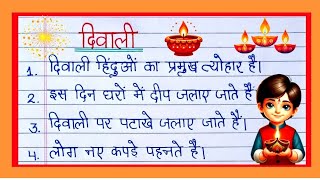 दिवाली
1. दिवाली हिंदुओं का प्रमुख त्योहार है।
2. इस दिन घरों में दीप जलाए जाते हैं।
3. दिवाली पर पटाखे जलाए जाते हैं।
4. लोग नए कपडे पहनते हैं।